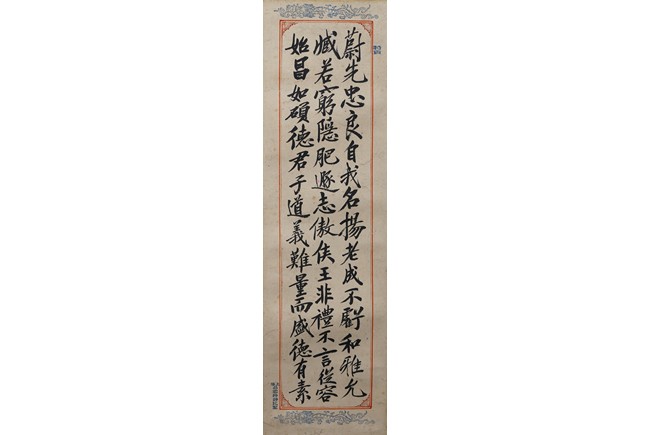 蔚先忠良自我名揚老成不虧和雅允
臧若窮隱肥遯志傲侯王非禮不言從容
始昌如碩德君子道義難量而盛德有素